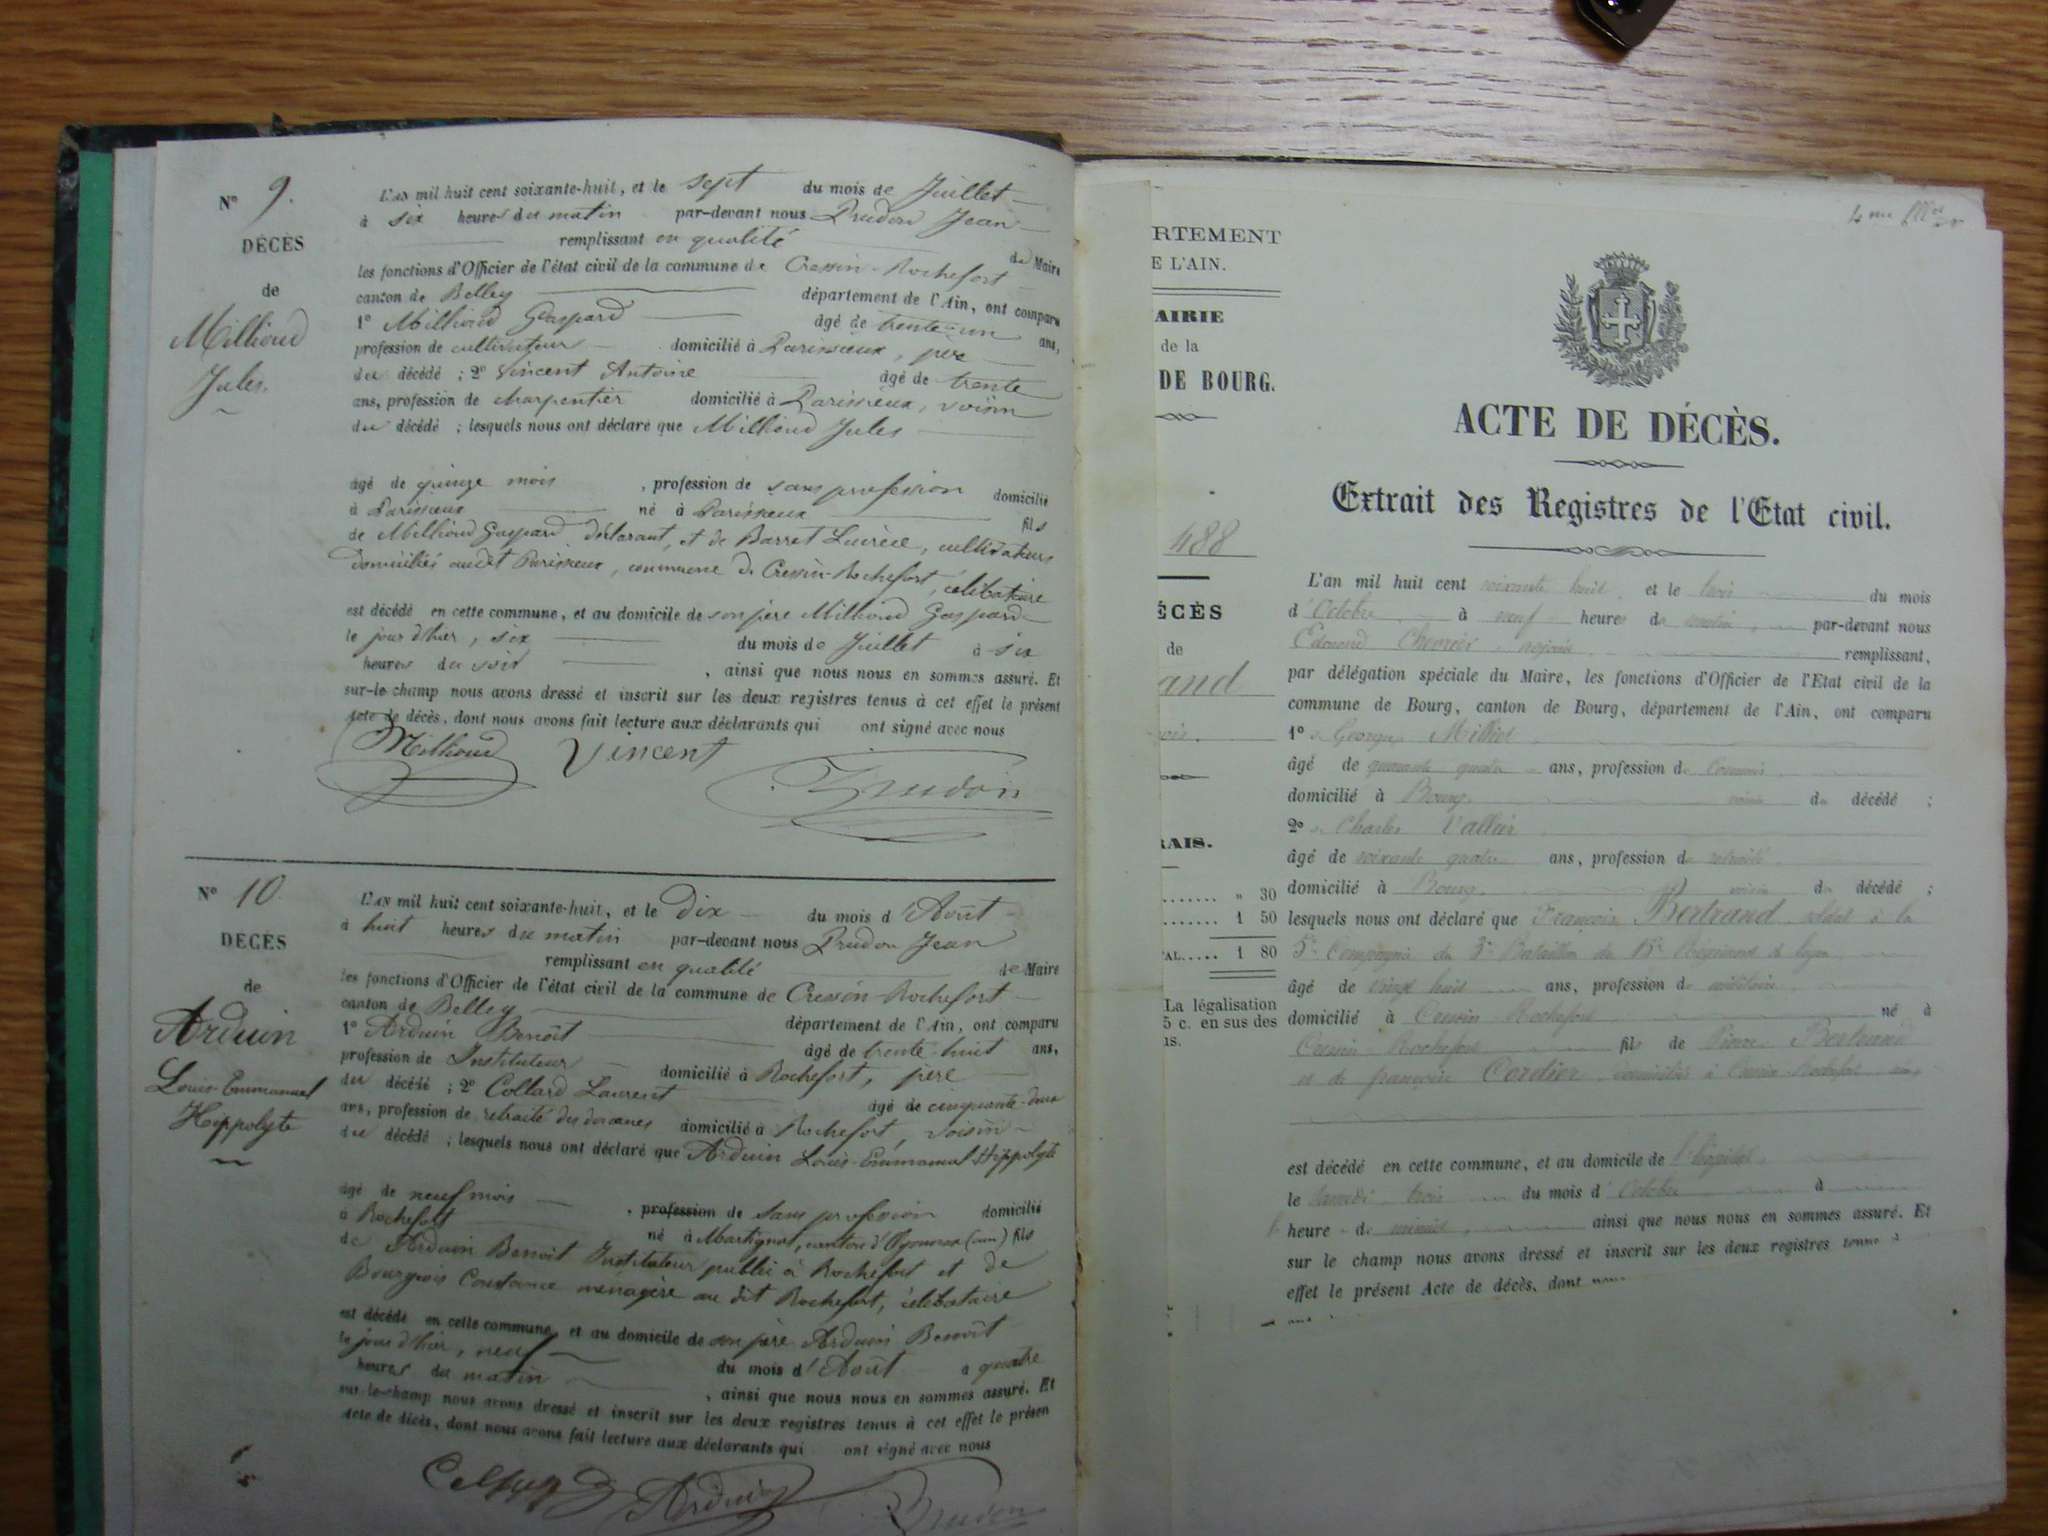 N° 9.
DÉCÈS
de
Millioud
Jules.
L'AN mil huit cent soixante-huit, et le sept du mois de Juillet
à six heures du matin par-devant nous Prudon Jean
remplissant en qualité de Maire
les fonctions d'Officier de l'état civil de la commune de Cressin-Rochefort
canton de Belley département de l'Ain, ont comparu
1° Millioud Gaspard âgé de trente-un ans,
profession de cultivateur domicilié à Parissieux, père
du décédé ; 2° Vincent Antoine âgé de trente
ans, profession de charpentier domicilié à Parissieux, voisin
du décédé ; lesquels nous ont déclaré que Millioud Jules
âgé de quinze mois, profession de sans profession domicilié
à Parissieux né à Parissieux fils
de Millioud Gaspard, déclarant, et de Barret Lucrèce, cultivateurs
domiciliés audit Parissieux, commune de Cressin-Rochefort, célibataire
est décédé en cette commune, et au domicile de son père Millioud Gaspard
le jour d'hier, six du mois de Juillet à six
heures du soir, ainsi que nous nous en sommes assuré. Et
sur-le-champ nous avons dressé et inscrit sur les deux registres tenus à cet effet le présent
acte de décès, dont nous avons fait lecture aux déclarants qui ont signé avec nous
Millioud Vincent Prudon
N° 10.
DÉCÈS
de
Arduin
Louis Emmanuel
Hippolyte
L'AN mil huit cent soixante-huit, et le dix du mois d'Août
à huit heures du matin par-devant nous Prudon Jean
remplissant en qualité de Maire
les fonctions d'Officier de l'état civil de la commune de Cressin-Rochefort
canton de Belley département de l'Ain, ont comparu
1° Arduin Benoît âgé de trente-huit ans,
profession de Instituteur domicilié à Rochefort, père
du décédé ; 2° Collard Laurent âgé de cinquante-deux
ans, profession de retraité des douanes domicilié à Rochefort, voisin
du décédé ; lesquels nous ont déclaré que Arduin Louis-Emmanuel Hippolyte
âgé de neuf mois, profession de sans profession domicilié
à Rochefort né à Martignat, canton d'Oyonnax (ain) fils
de Arduin Benoît Instituteur public à Rochefort et de
Bourgeois Constance ménagère au dit Rochefort, célibataire
est décédé en cette commune, et au domicile de son père Arduin Benoît
le jour d'hier, neuf du mois d'Août à quatre
heures du matin, ainsi que nous nous en sommes assuré. Et
sur-le-champ nous avons dressé et inscrit sur les deux registres tenus à cet effet le présen
acte de décès, dont nous avons fait lecture aux déclarants qui ont signé avec nous
Arduin Prudon
RTEMENT
E L'AIN.
AIRIE
de la
DE BOURG.
488
ÉCÈS
de
and
ois.
RAIS.
" 30
1 50
TAL..... 1 80
La légalisation
5 c. en sus des
is.
ACTE DE DÉCÈS.
Extrait des Registres de l'Etat civil.
L'an mil huit cent soixante huit et le trois du mois
d'Octobre à neuf heures du matin, par-devant nous
Edmond Chevrier, adjoint remplissant,
par délégation spéciale du Maire, les fonctions d'Officier de l'Etat civil de la
commune de Bourg, canton de Bourg, département de l'Ain, ont comparu
1° Georges Milliot
âgé de quarante quatre ans, profession de commis
domicilié à Bourg voisin du décédé ;
2° Charles
âgé de soixante quatre ans, profession de retraité
domicilié à Bourg voisin du décédé ;
lesquels nous ont déclaré que François Bertrand soldat à la
5e Compagnie du 3e Bataillon du Régiment de ligne
âgé de vingt huit ans, profession de militaire
domicilié à Cressin-Rochefort né à
Cressin-Rochefort fils de Pierre Bertrand
et de françoise Cordier domiciliés à Cressin-Rochefort
est décédé en cette commune, et au domicile de l'hôpital
le samedi trois du mois d'Octobre à
heure de minuit, ainsi que nous nous en sommes assuré. Et
sur le champ nous avons dressé et inscrit sur les deux registres tenus à
effet le présent Acte de décès, dont nous